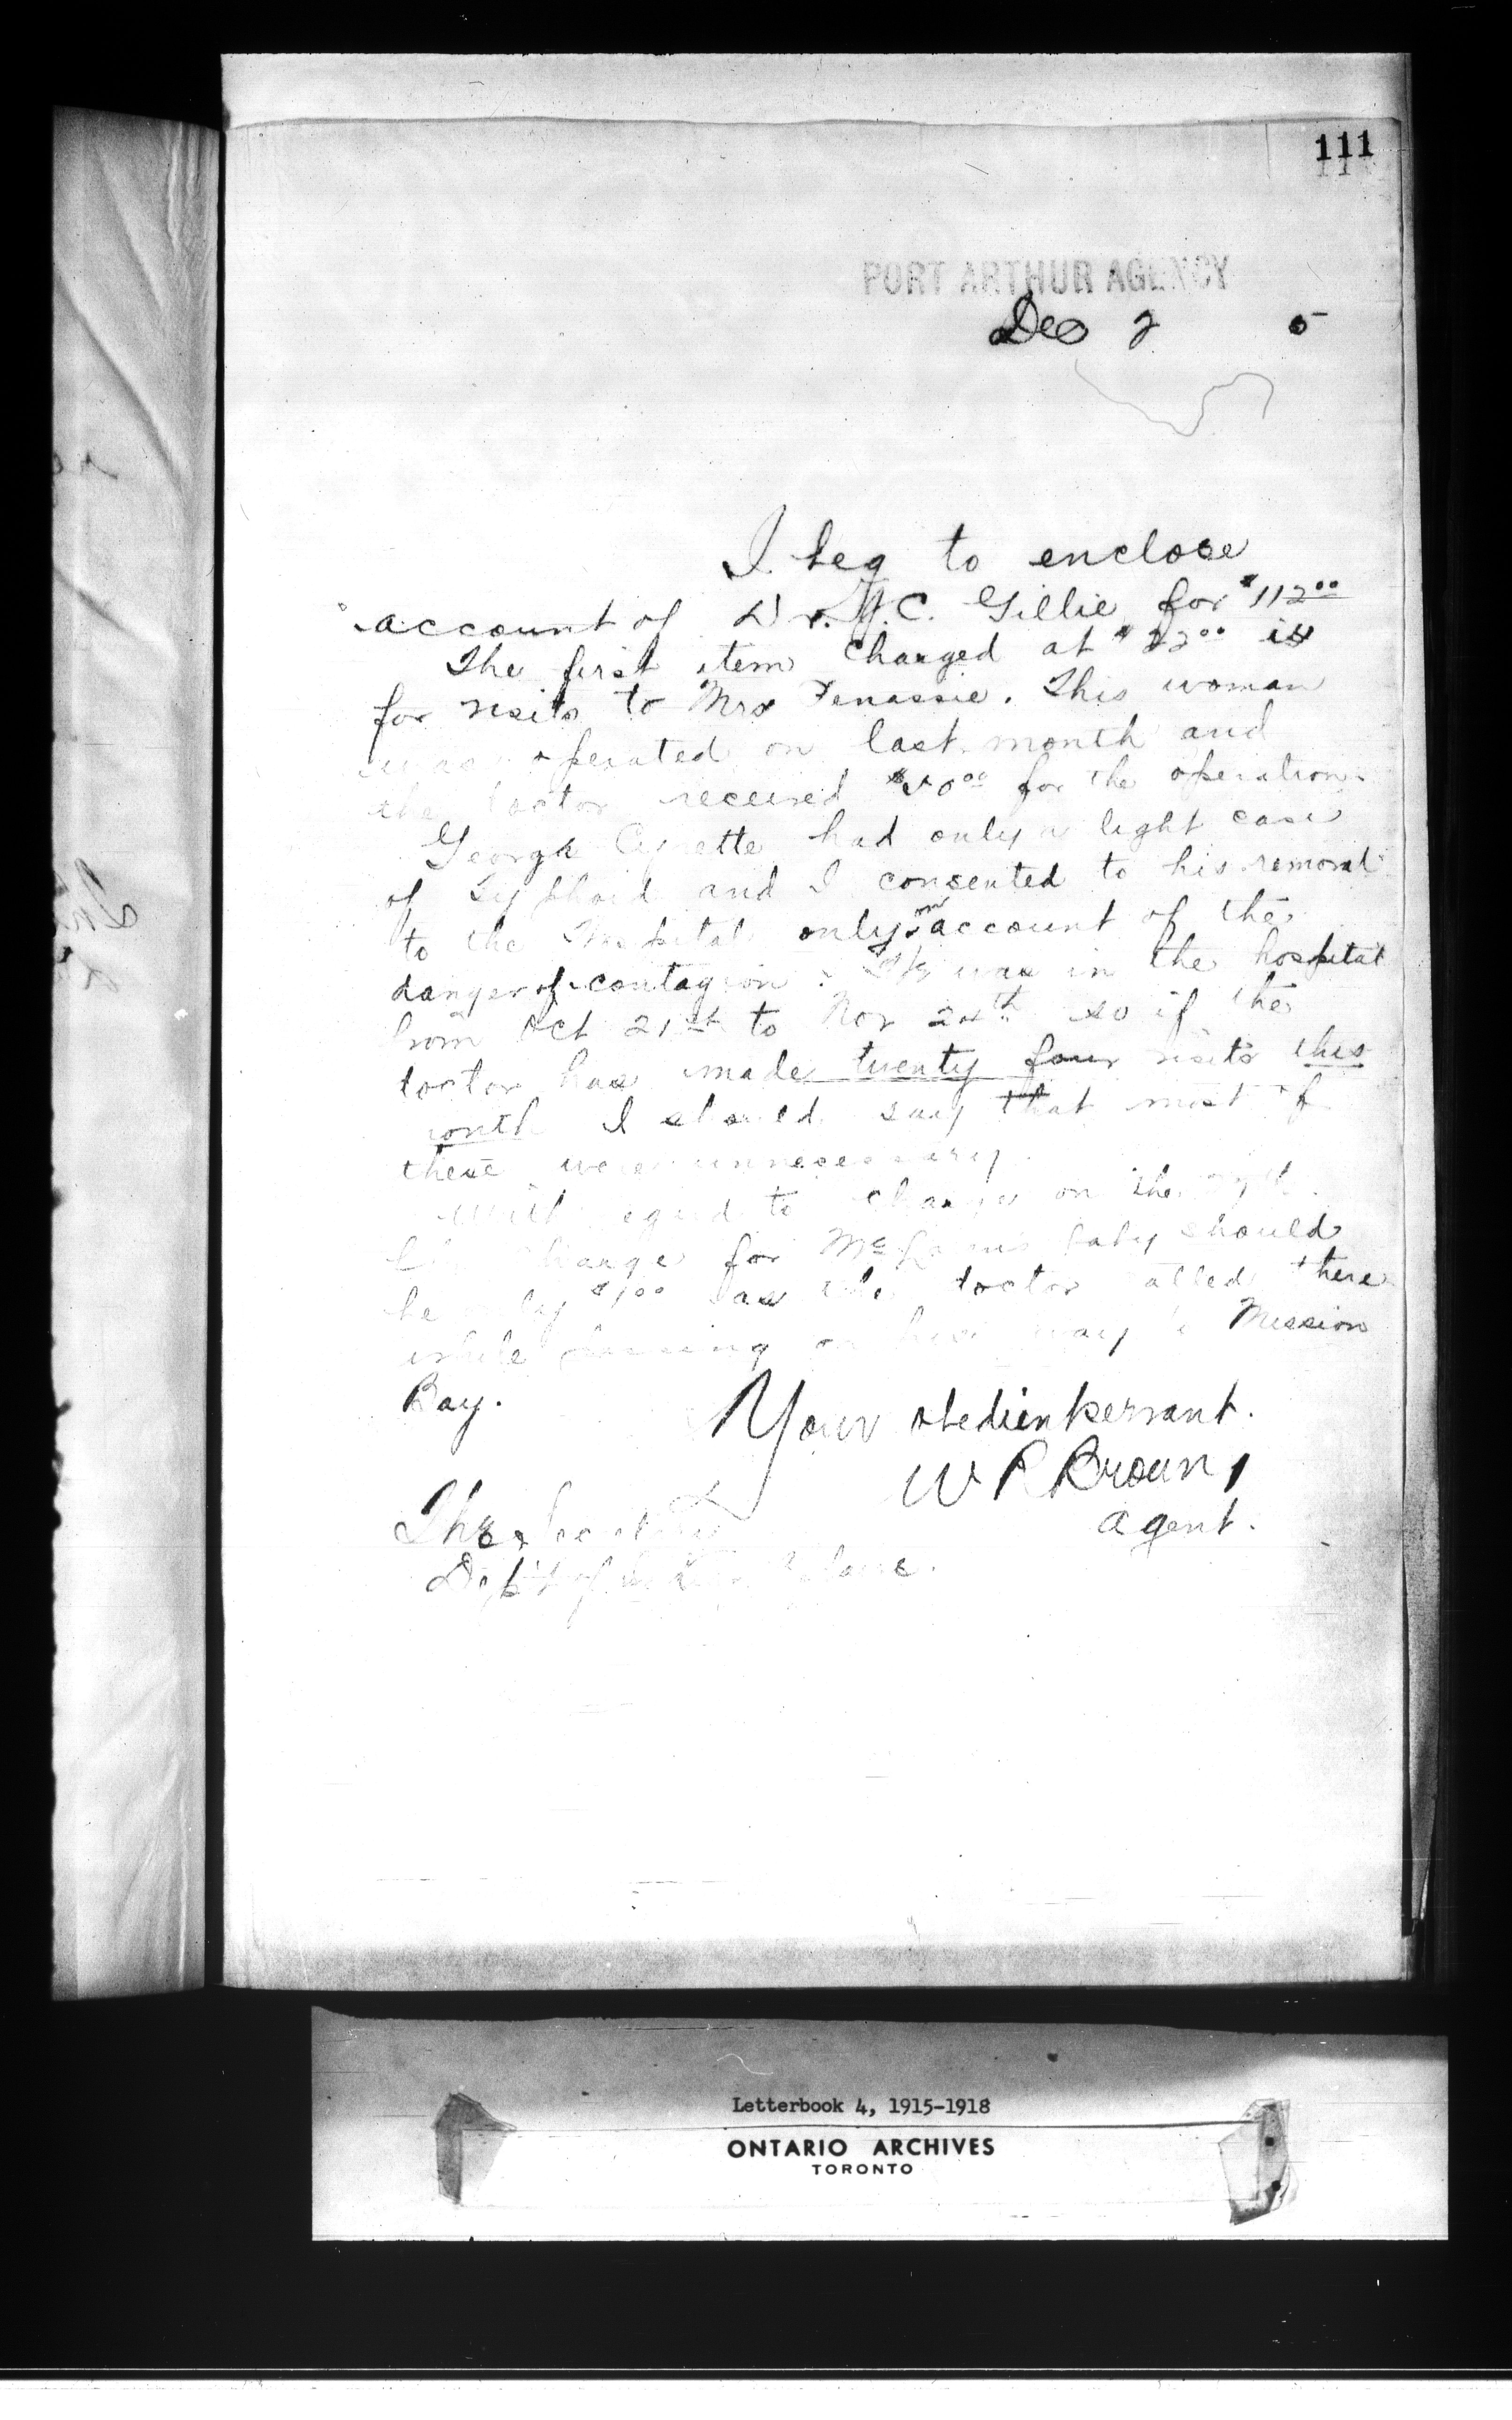 111
PORT ARTHUR AGENCY
Dec 2 5
I beg to enclose
account of Dr. C. Gillie for $112.00
The first item charged at $22.00 is
for visits to Mrs . This woman
was operated on last month and
the doctor received for the operation.
George Cyrette had only a light case
of Typhoid and I consented to his removal
to the Hospital only on account of the
danger of contagion. He was in the hospital
from Oct 21st to Nov 24th so if the
doctor has made twenty four visits this
month I should say that most of
these were unnecessary.
With regard to charges on the
charge for baby should
be only $1.00 as the doctor called there
while passing on his way to Mission
Bay.
Your obedient servant.
W R Brown,
Agent.
The Secretary
Dept of
Letterbook 4, 1915-1918
ONTARIO ARCHIVES
TORONTO